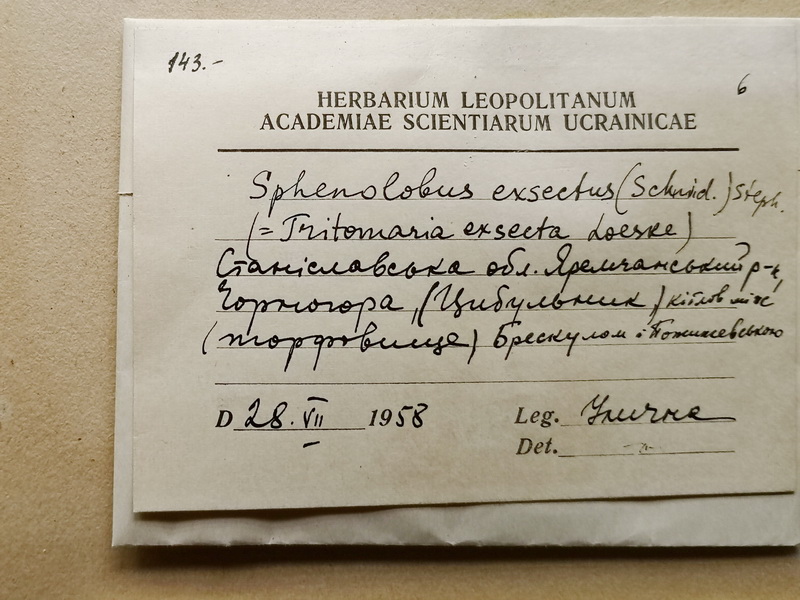 143.-
6
HERBARIUM LEOPOLITANUM
ACADEMIAE SCIENTIARUM UCRAINICAE
Sphenolobus exsectus (Schmid.) Steph.
(= Tritomaria exsecta Loeske)
Станіславська обл. Яремчанський р-н,
Чорногора, (Цибульник) котлов між
(торфовище) Брескулом і Пожижевською
D 28. VII 1958 Leg. Улична
Det. -"-